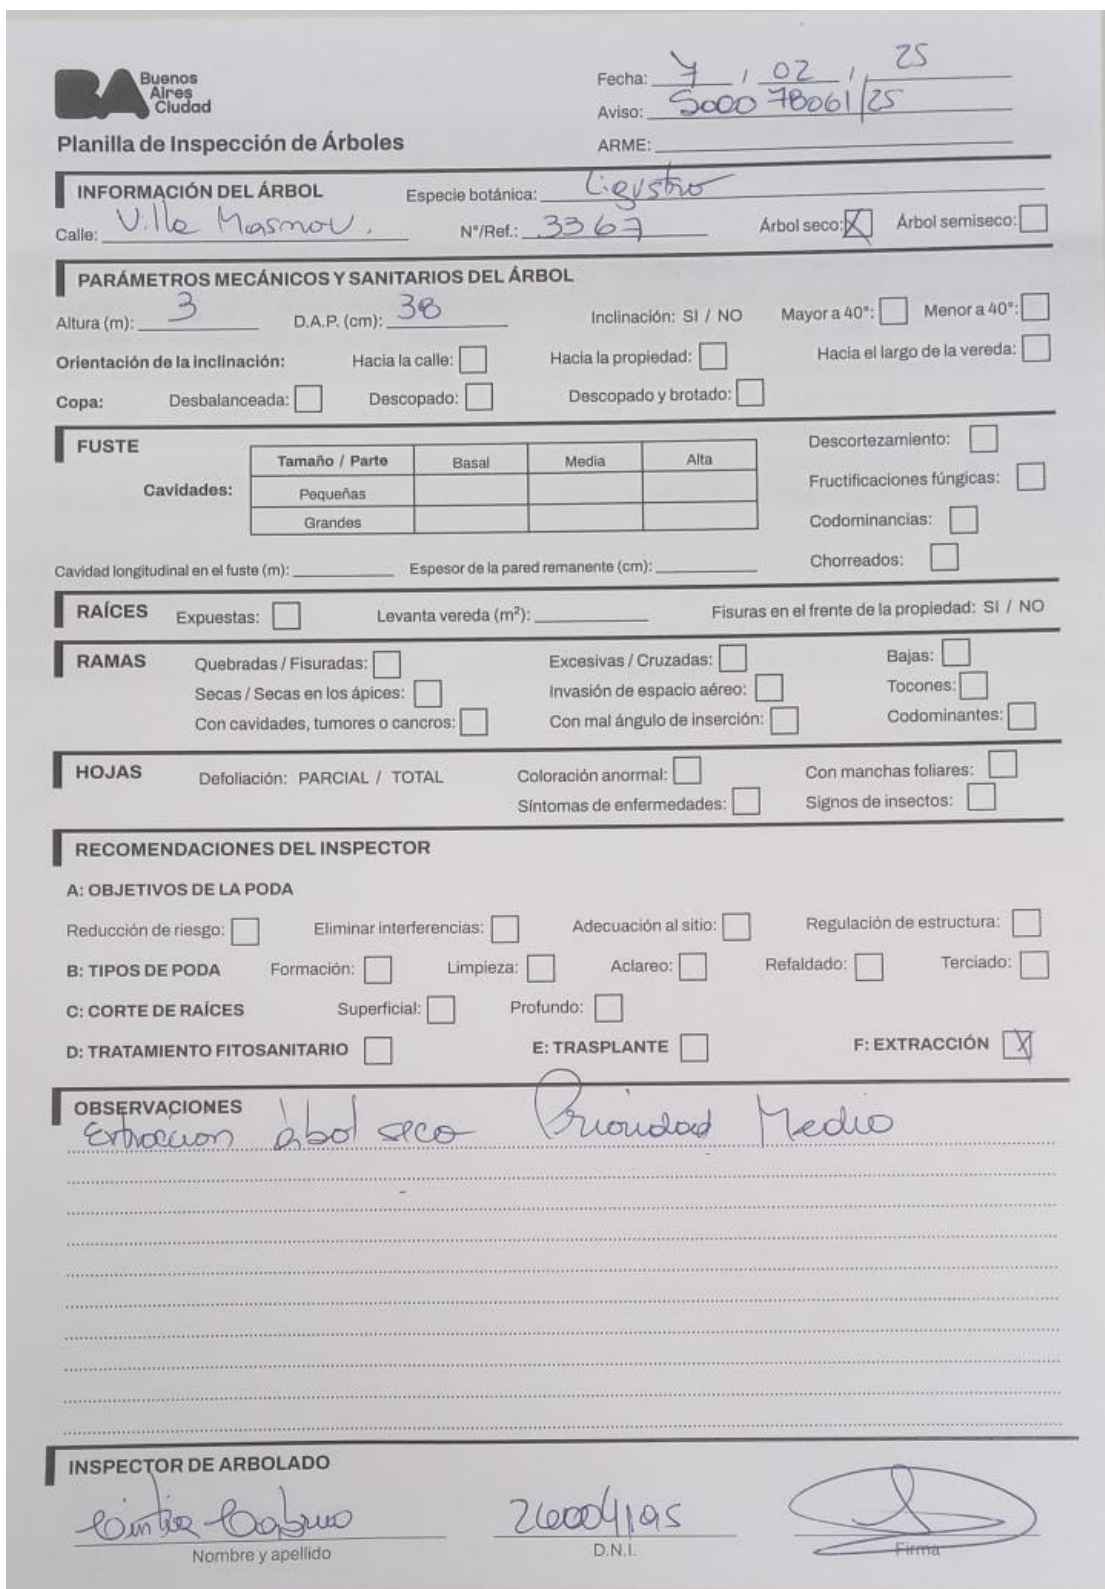 BA Buenos Aires Ciudad
Fecha: 7 / 02 / 25
Aviso: 5000 78061/25
Planilla de Inspección de Árboles
ARME:
INFORMACIÓN DEL ÁRBOL Especie botánica: Ligustro
Calle: Ville Masnou. N°/Ref.: 3367 Árbol seco: X Árbol semiseco:
PARÁMETROS MECÁNICOS Y SANITARIOS DEL ÁRBOL
Altura (m): 3 D.A.P. (cm): 38 Inclinación: SI / NO Mayor a 40°: Menor a 40°:
Orientación de la inclinación: Hacia la calle: Hacia la propiedad: Hacia el largo de la vereda:
Copa: Desbalanceada: Descopado: Descopado y brotado:
FUSTE
Descortezamiento:
Tamaño / Parte Basal Media Alta
Cavidades: Pequeñas
Fructificaciones fúngicas:
Grandes
Codominancias:
Chorreados:
Cavidad longitudinal en el fuste (m): Espesor de la pared remanente (cm):
RAÍCES Expuestas: Levanta vereda (m²): Fisuras en el frente de la propiedad: SI / NO
RAMAS Quebradas / Fisuradas: Excesivas / Cruzadas: Bajas:
Secas / Secas en los ápices: Invasión de espacio aéreo: Tocones:
Con cavidades, tumores o cancros: Con mal ángulo de inserción: Codominantes:
HOJAS Defoliación: PARCIAL / TOTAL Coloración anormal: Con manchas foliares:
Síntomas de enfermedades: Signos de insectos:
RECOMENDACIONES DEL INSPECTOR
A: OBJETIVOS DE LA PODA
Reducción de riesgo: Eliminar interferencias: Adecuación al sitio: Regulación de estructura:
B: TIPOS DE PODA Formación: Limpieza: Aclareo: Refaldado: Terciado:
C: CORTE DE RAÍCES Superficial: Profundo:
D: TRATAMIENTO FITOSANITARIO E: TRASPLANTE F: EXTRACCIÓN X
OBSERVACIONES
Extracción árbol seco Prioridad Medio
INSPECTOR DE ARBOLADO
Cintia
Nombre y apellido D.N.I. Firma